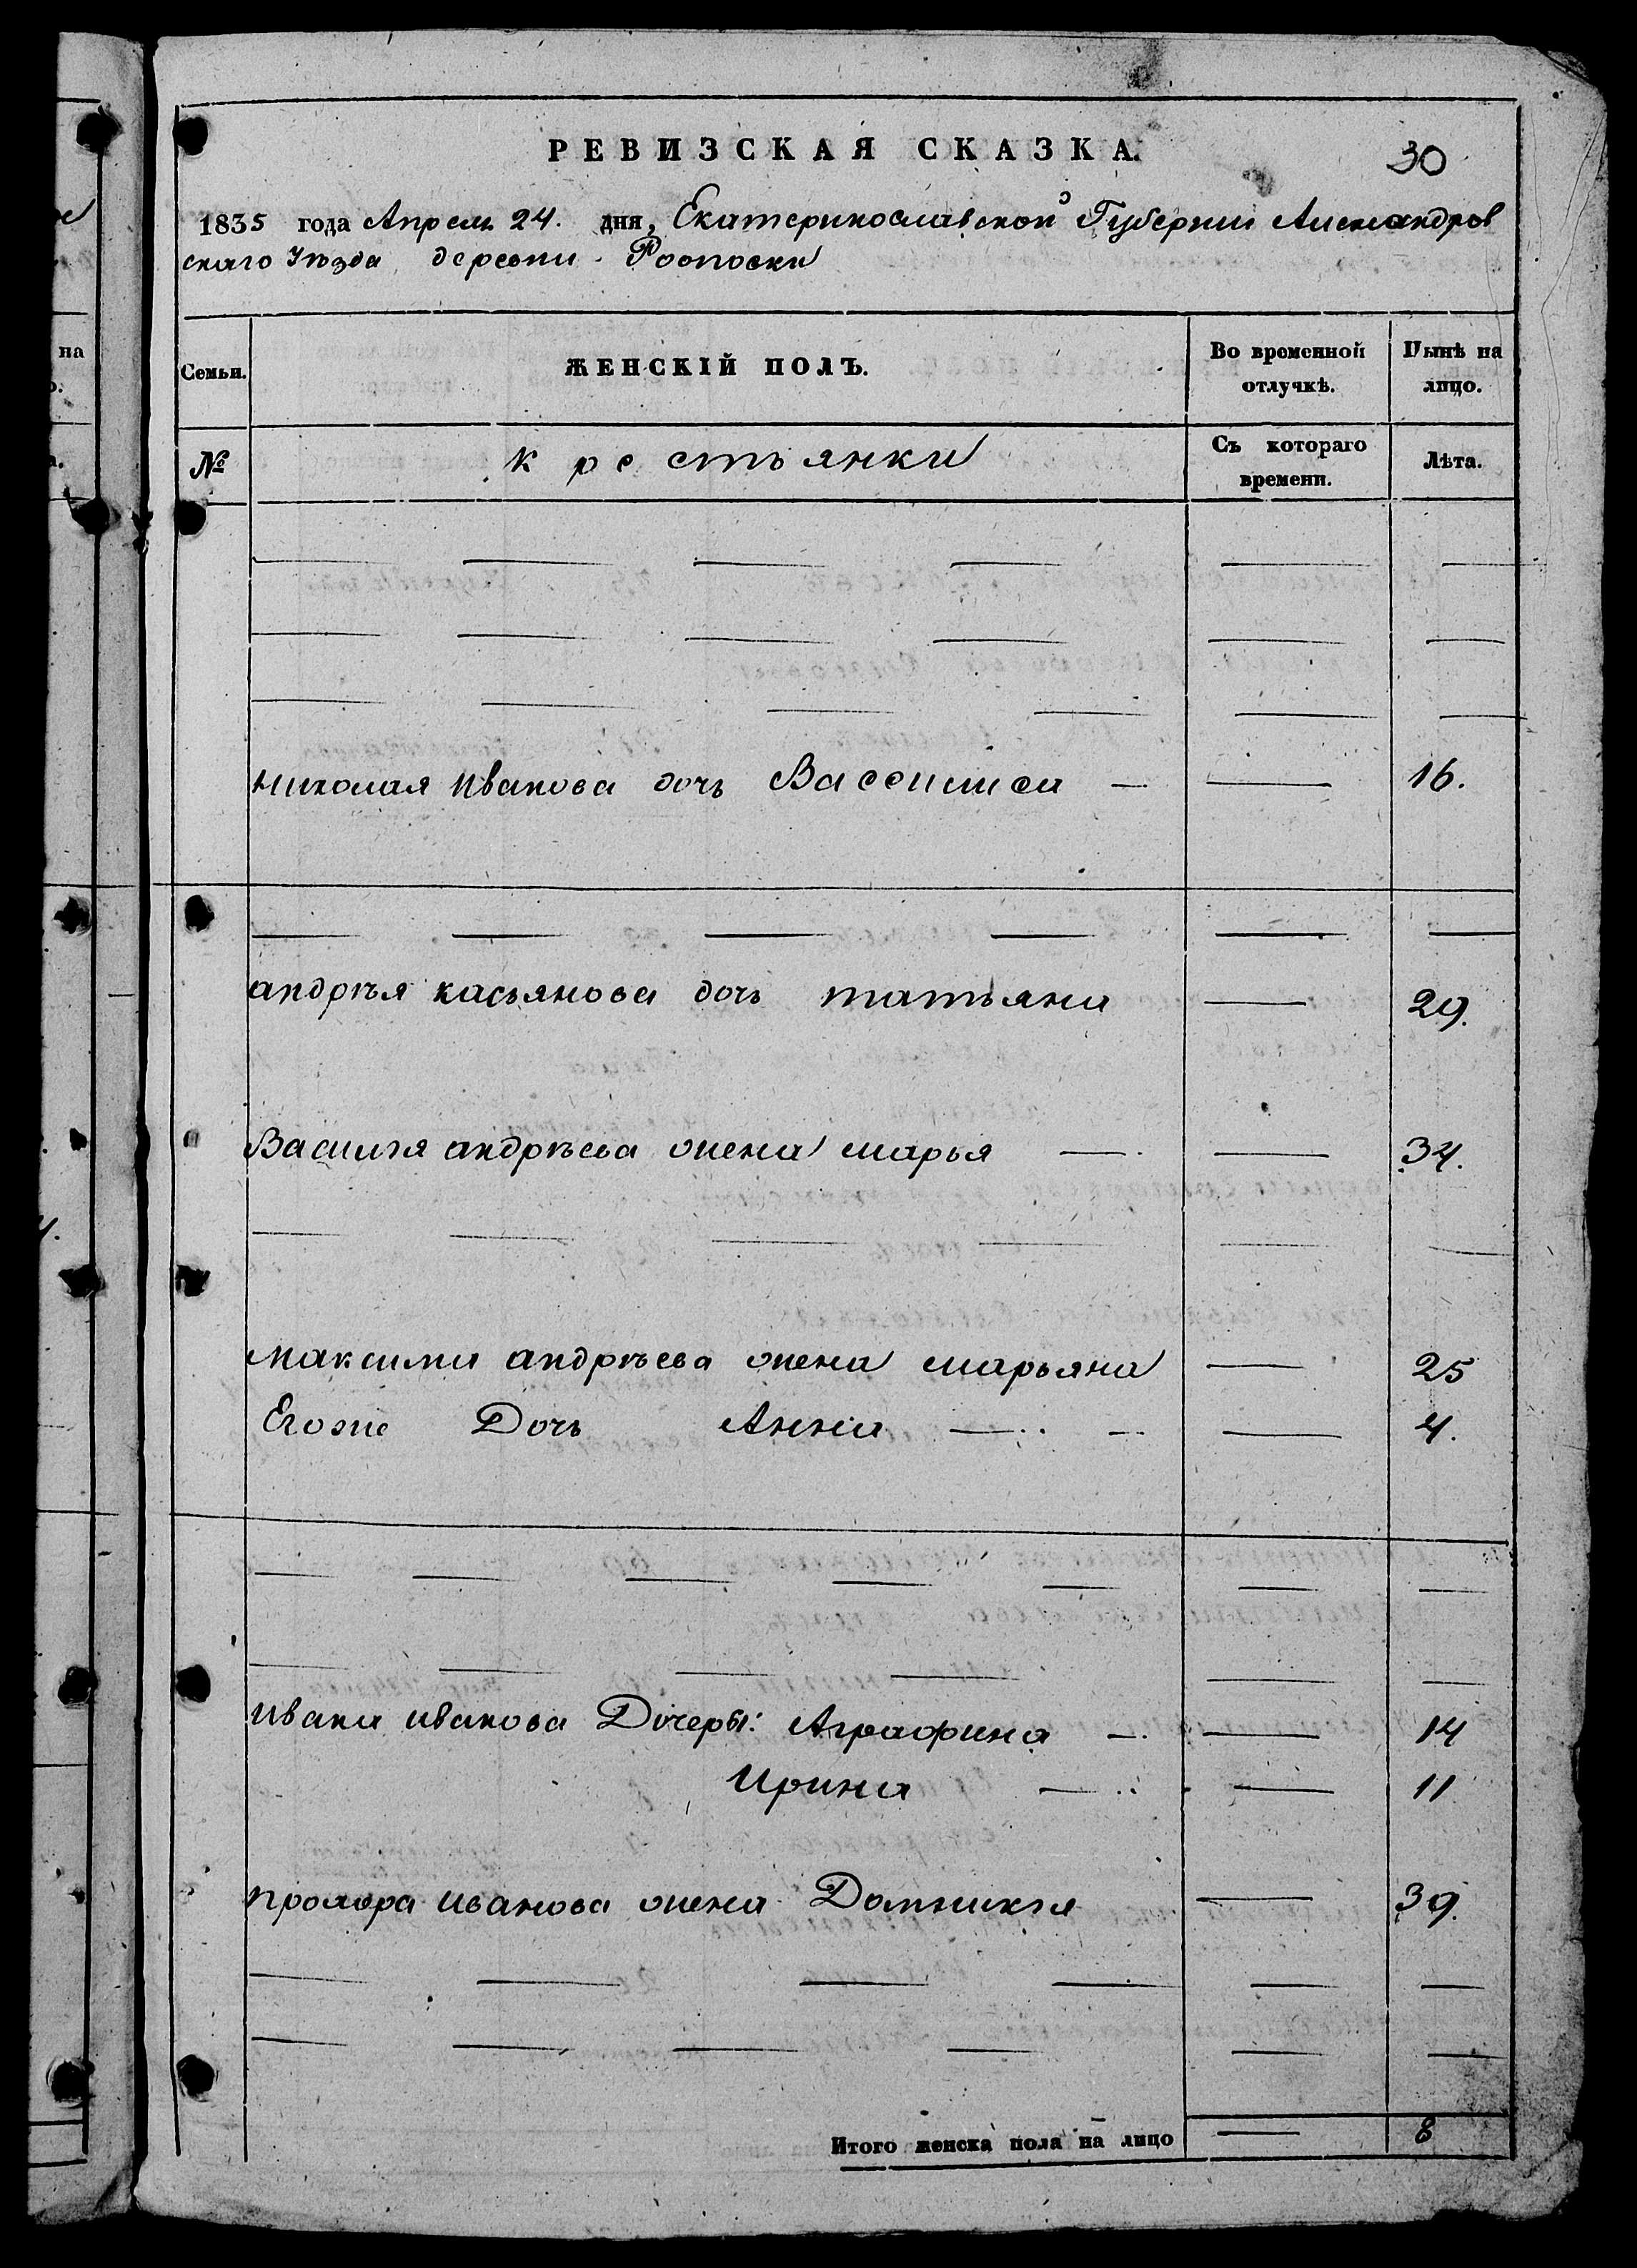 РЕВИЗСКАЯ СКАЗКА.
30
1835 года Апреля 24. дня, Екатеринославской Губернии Александров
скаго Уѣзда деревни
Семьи.
ЖЕНСКІЙ ПОЛЪ.
Во временной отлучкѣ.
Нынѣ на лицо.
№
крестьянки
Съ котораго времени.
Лѣта.
Николая Иванова дочь — — 16.
андрѣя касьянова дочь татьяна — 29.
Василія андрѣева жена марья — — 34.
Максима андрѣева жена марьяна — 25
Егоже Дочь Анна — — — 4.
Ивана иванова Дочеры: Аграфина — — 14
Ирина — — 11
прохора иванова жена Домникія — 39.
Итого женска пола на лицо — 8